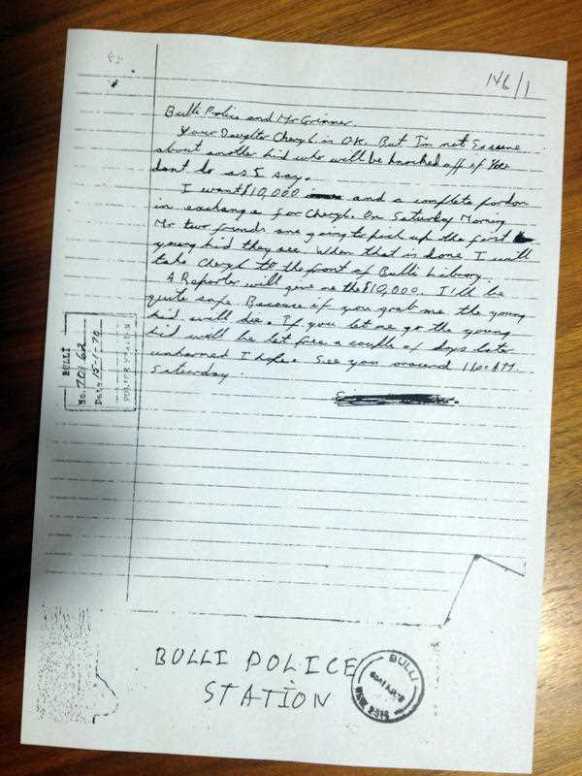 146/1
Bulli Police and Mr Grimmer.
Your Daughter Cheryl is O.K. But I'm not So
about another kid who will be knocked off if You
dont do as I say.
I want $10,000 and a complete pardon
in exchange for Cheryl. On Saturday Morning
Mr two friends are going to pick up the first
young kid they see. When that is done I will
take Cheryl to the front of Bulli Library.
A Reporter will give me the $10,000. I'll be
quite safe. Because if you grab me the young
kid will die. If you let me go the young
kid will be let free a couple of days late
unharmed I hope. See you around 11 o AM
Saturday.
BULLI
No. 70/62
Date 15-1-70
BULLI POLICE
STATION
BULLI